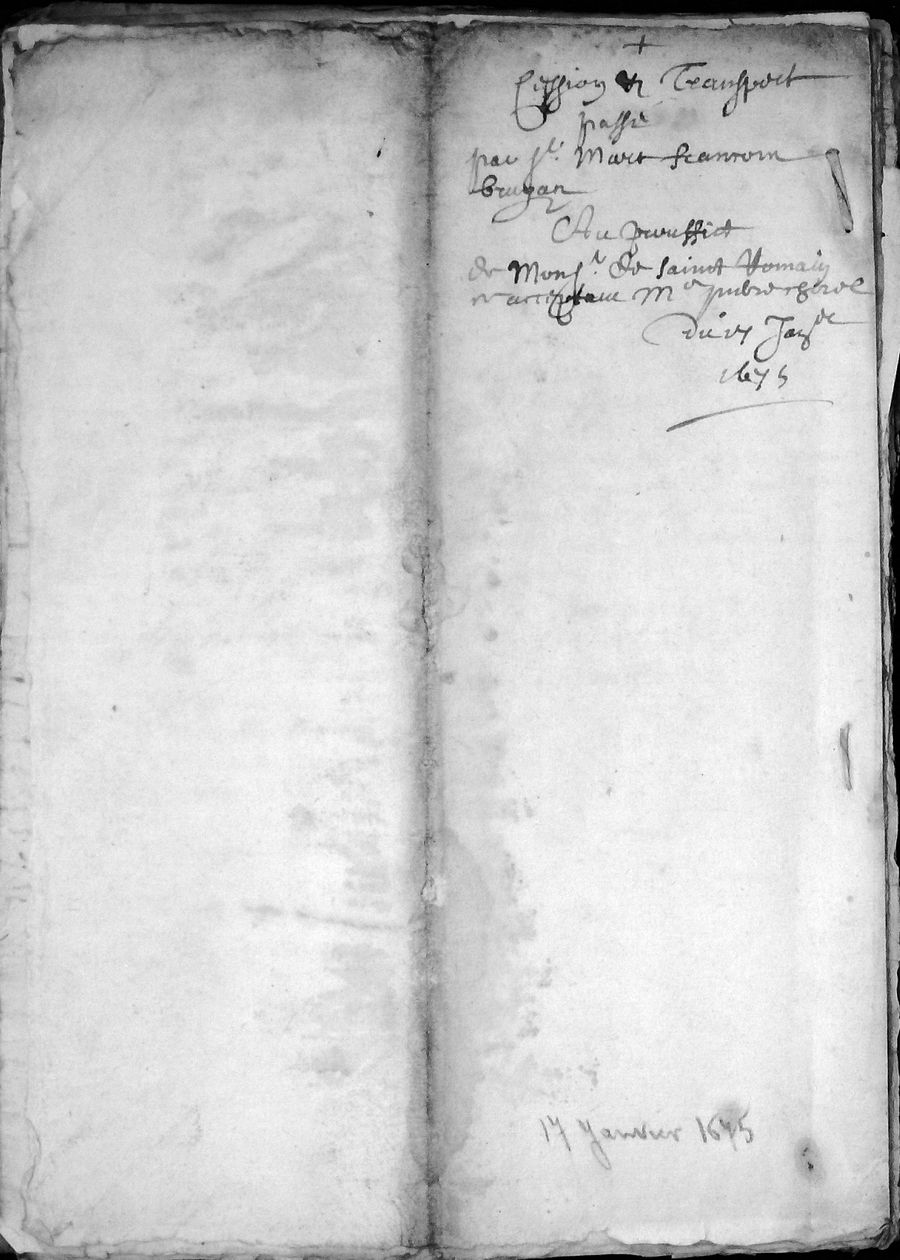 +
Cession & Transport
passé
par Sr. Marc francom
brugan
Au prouffict
de Monsr. de saint Romain
acceptant Me
du 17 Janer
1675
17 Janvier 1675